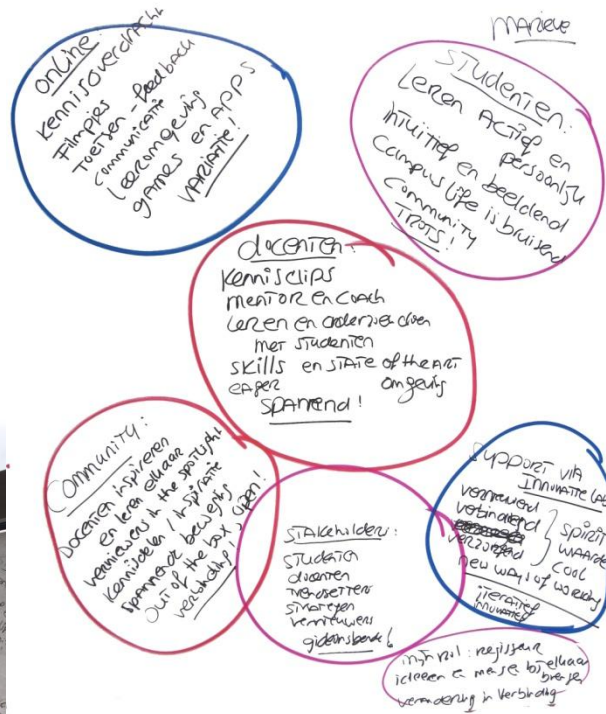 Marieke
Online:
kennisoverdracht
Filmpjes
Toetsen - feedback
communicatie
leeromgeving
games en APPS
VARIATIE!
STudenten:
Leren Actief en
persoonlijk
intuitief en beeldend
Campus life is bruisend
Community
TROTS!
docenten:
kennisclips
mentor en coach
Leren en onderzoek doen
met studenten
skills en state of the ART
eager omgeving
spannend!
Community:
Docenten inspireren
en leren elkaar
vernieuwers in the spotlight
kennisdelen / inspiratie
spannende beweging
out of the box
verbinding
stakeholders:
studenten
docenten
trendsetters
strategen
vernieuwers
gideonsbende
SUPPORT VIA
innovatie lab
vernieuwend
verbindend
verzorgd
spirit
waarde
cool
new ways of working
iteratief
innovatief
mijn rol: regisseur
ideeen en mensen bij elkaar
brengen
verandering in verbinding